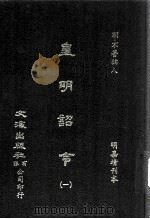 明不著撰人
明嘉靖刊本
皇明詔令
(一)
文海出版社有限公司印行